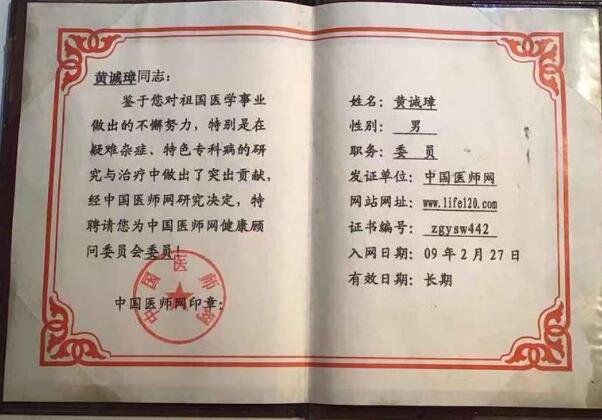 黄诚璋同志：
鉴于您对祖国医学事业
做出的不懈努力，特别是在
疑难杂症、特色专科病的研
究与治疗中做出了突出贡献，
经中国医师网研究决定，特
聘请您为中国医师网健康顾
问委员会委员！
中国医师网印章：
中国医师网
姓名：黄诚璋
性别：男
职务：委员
发证单位：中国医师网
网站网址：www.life120.com
证书编号：zgysw442
入网日期：09年2月27日
有效日期：长期